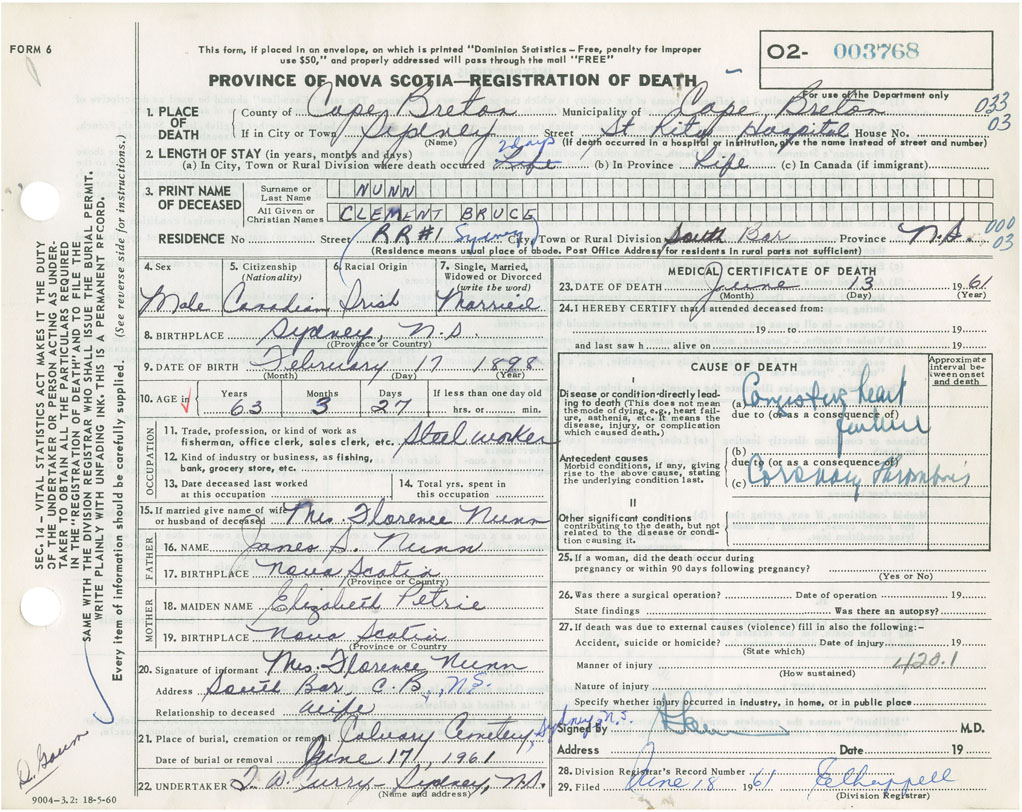 FORM 6
This form, if placed in an envelope, on which is printed "Dominion Statistics – Free, penalty for improper
use $50," and properly addressed will pass through the mail "FREE"
02- 003768
PROVINCE OF NOVA SCOTIA—REGISTRATION OF DEATH
For use of the Department only
1. PLACE OF DEATH
County of Cape Breton Municipality of Cape Breton
033
03
If in City or Town Sydney Street St. Rita Hospital House No.
(Name) (If death occurred in a hospital or institution, give the name instead of street and number)
2. LENGTH OF STAY (in years, months and days)
2 days
(a) In City, Town or Rural Division where death occurred Life (b) In Province Life (c) In Canada (if immigrant)
3. PRINT NAME OF DECEASED
Surname or Last Name NUNN
All Given or Christian Names CLEMENT BRUCE
RESIDENCE No Street RR#1 Sydney City, Town or Rural Division South Bar Province N.S.
000
03
(Residence means usual place of abode. Post Office Address for residents in rural parts not sufficient)
4. Sex Male
5. Citizenship (Nationality) Canadian
6. Racial Origin Irish
7. Single, Married, Widowed or Divorced (write the word) Married
8. BIRTHPLACE Sydney, N.S
(Province or Country)
9. DATE OF BIRTH February 17 1898
(Month) (Day) (Year)
10. AGE in Years 63 Months 3 Days 27 If less than one day old hrs. or min.
OCCUPATION
11. Trade, profession, or kind of work as
fisherman, office clerk, sales clerk, etc. Steel worker
12. Kind of industry or business, as fishing,
bank, grocery store, etc.
13. Date deceased last worked
at this occupation
14. Total yrs. spent in
this occupation
15. If married give name of wife
or husband of deceased Mrs. Florence Nunn
FATHER
16. NAME James S. Nunn
17. BIRTHPLACE Nova Scotia
(Province or Country)
MOTHER
18. MAIDEN NAME Elizabeth Petrie
19. BIRTHPLACE Nova Scotia
(Province or Country
20. Signature of informant Mrs. Florence Nunn
Address South Bar, C.B., N.S.
Relationship to deceased wife
21. Place of burial, cremation or removal Calvary Cemetery, Sydney, N.S.
Date of burial or removal June 17, 1961
22. UNDERTAKER T. W. Curry Sydney, N.S.
(Name and address)
9004-3.2: 18-5-60
MEDICAL CERTIFICATE OF DEATH
23. DATE OF DEATH June 13 1961
(Month) (Day) (Year)
24. I HEREBY CERTIFY that I attended deceased from:
19 to 19
and last saw h alive on 19
CAUSE OF DEATH
Approximate interval between onset and death
I
Disease or condition directly leading
to death (This does not mean
the mode of dying, e.g., heart failure,
asthenia, etc. It means the
disease, injury, or complication
which caused death.)
(a) Congestive heart
due to (or as a consequence of)
failure
Antecedent causes
Morbid conditions, if any, giving
rise to the above cause, stating
the underlying condition last.
(b)
due to (or as a consequence of)
(c) Coronary thrombosis
II
Other significant conditions
contributing to the death, but not
related to the disease or condition
causing it.
25. If a woman, did the death occur during
pregnancy or within 90 days following pregnancy?
(Yes or No)
26. Was there a surgical operation? Date of operation 19
State findings Was there an autopsy?
27. If death was due to external causes (violence) fill in also the following:-
Accident, suicide or homicide? Date of injury 19
(State which)
420.1
Manner of injury
(How sustained)
Nature of injury
Specify whether injury occurred in industry, in home, or in public place
Signed by M.D.
Address Date 19
28. Division Registrar's Record Number
29. Filed June 18 1961
(Division Registrar)
SEC. 14 – VITAL STATISTICS ACT MAKES IT THE DUTY
OF THE UNDERTAKER OR PERSON ACTING AS UNDERTAKER
TO OBTAIN ALL THE PARTICULARS REQUIRED
IN THE "REGISTRATION OF DEATH" AND TO FILE THE
SAME WITH THE DIVISION REGISTRAR WHO SHALL ISSUE THE BURIAL PERMIT.
WRITE PLAINLY WITH UNFADING INK. THIS IS A PERMANENT RECORD.
Every item of information should be carefully supplied. (See reverse side for instructions.)